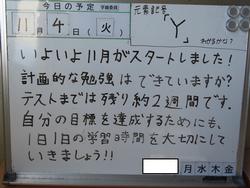 今日の予定
11月4日(火)
元素記号
Y
わかるかな?
いよいよ11月がスタートしました!
計画的な勉強はできていますか?
テストまでは残り約2週間です.
自分の目標を達成するためにも、
1日1日の学習時間を大切にして
いきましょう!!
月水木金